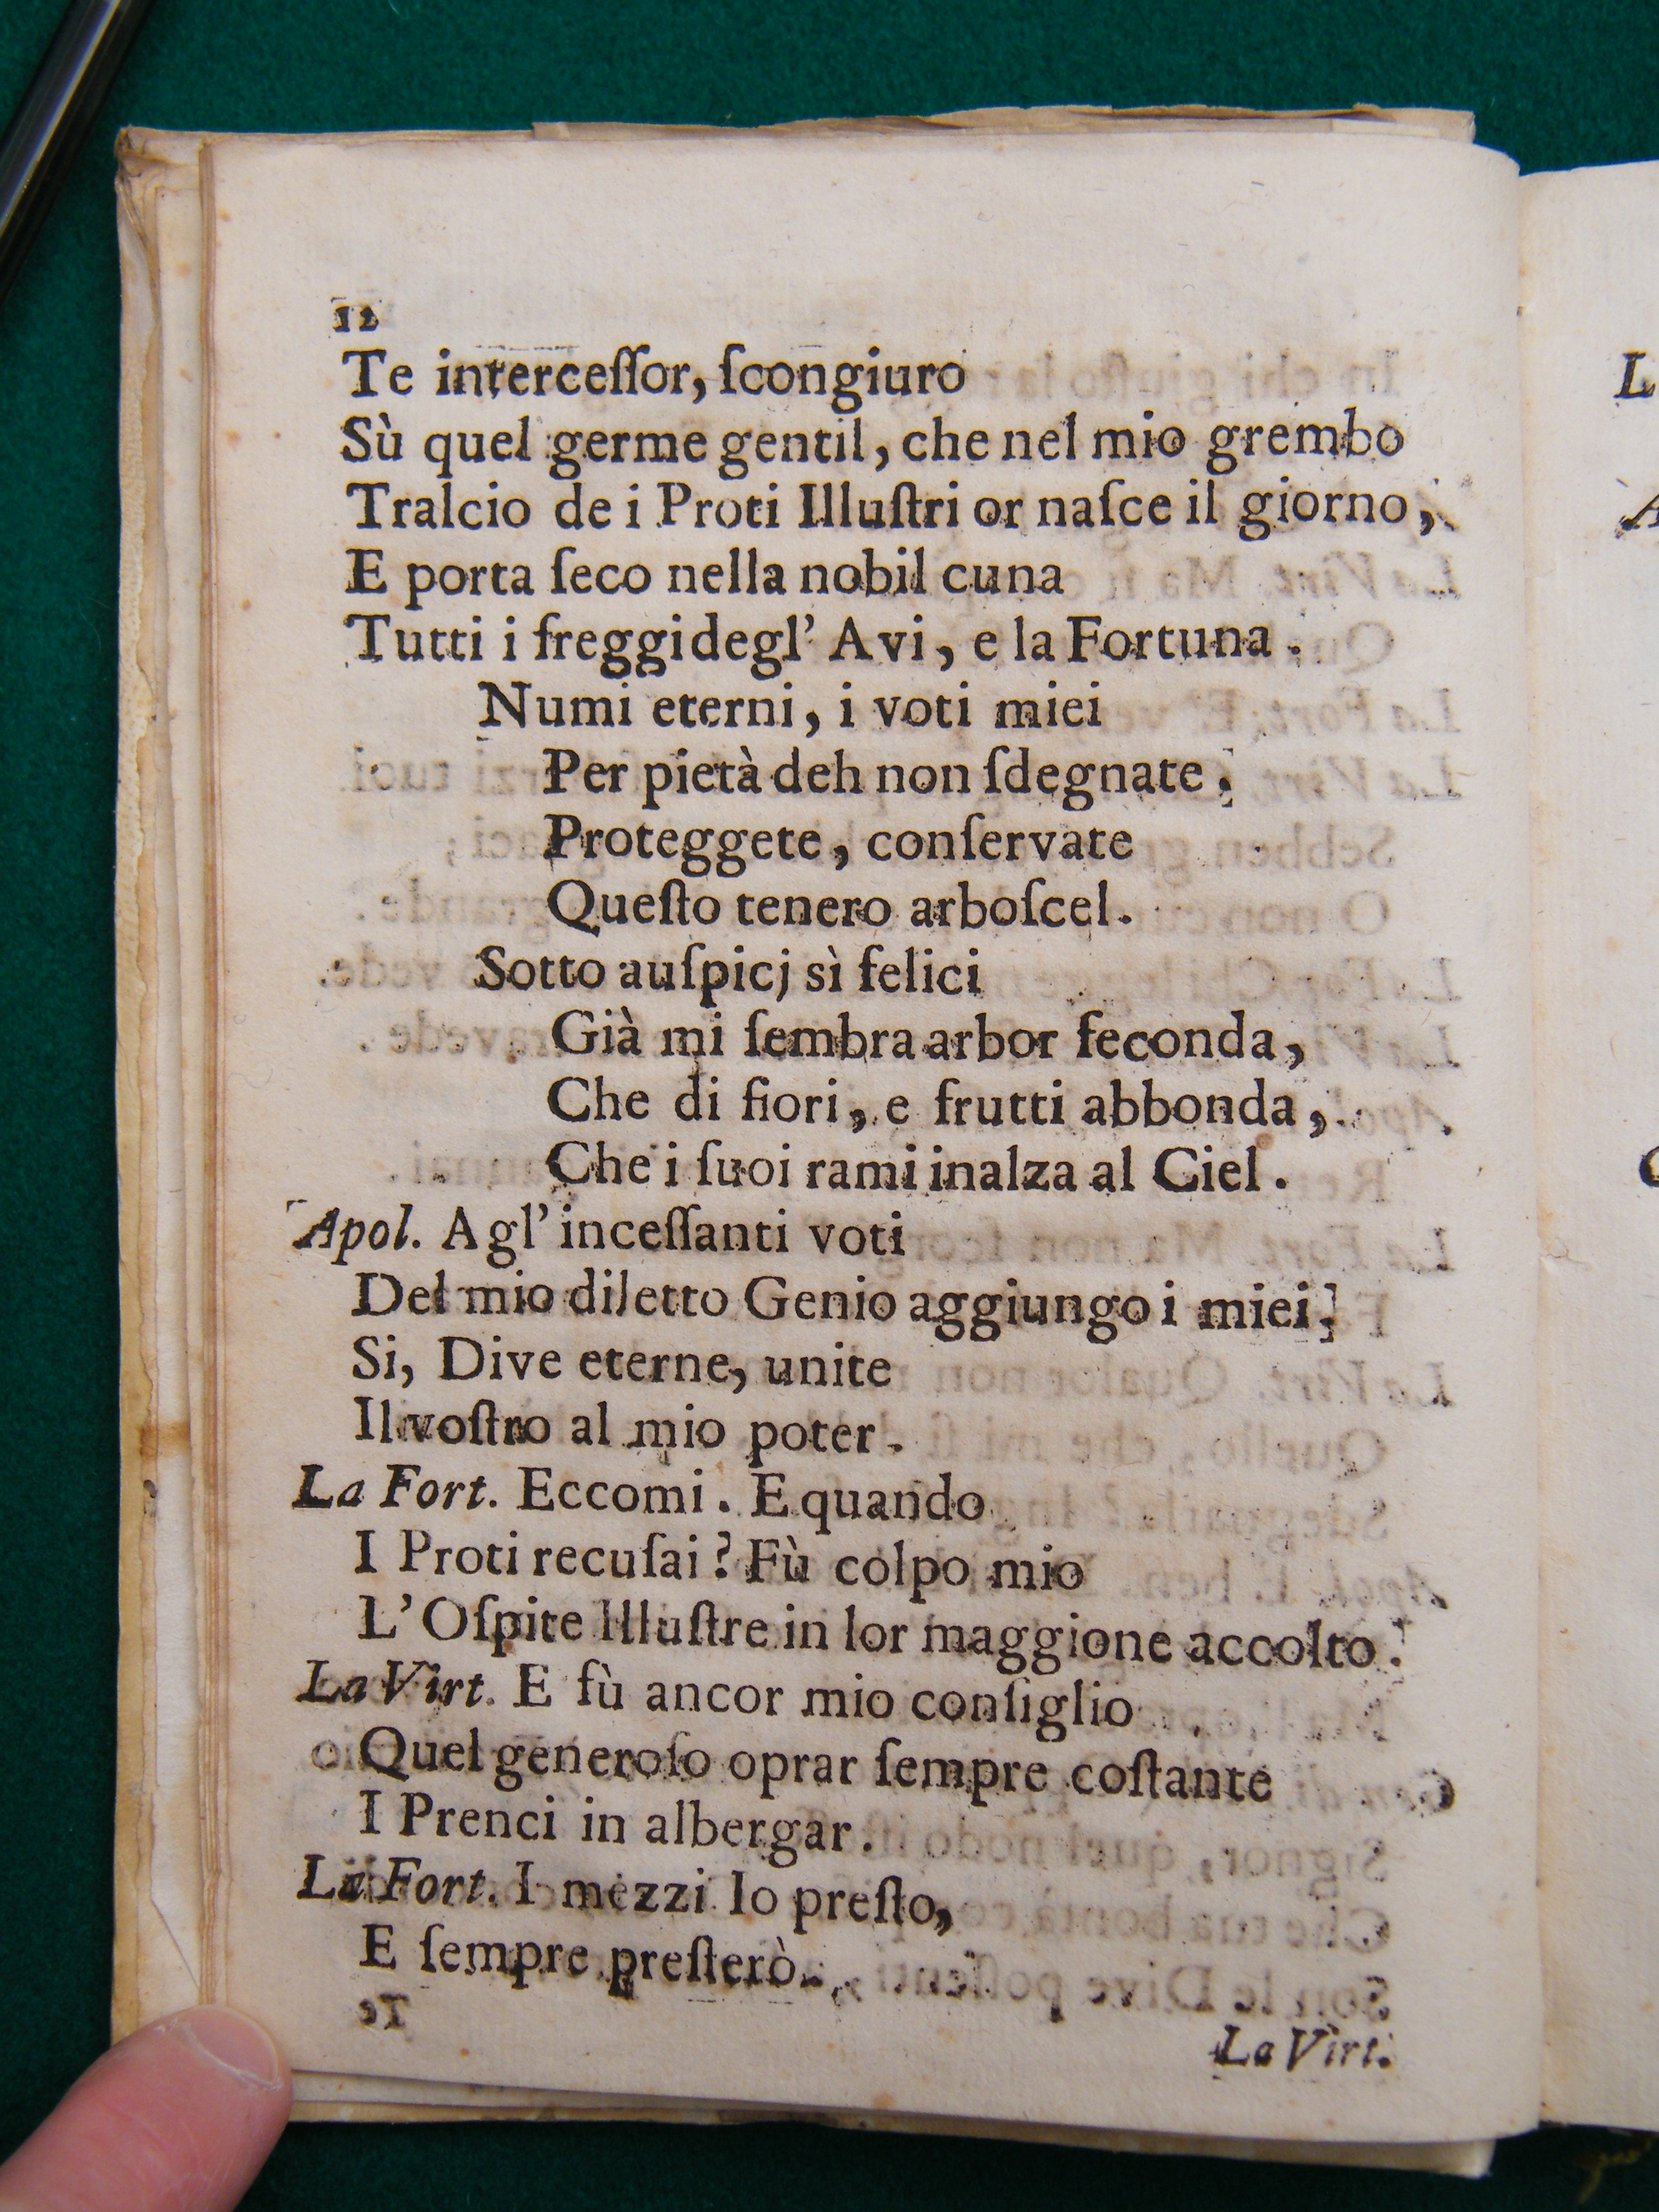 12
Te interceſſor, ſcongiuro
Sù quel germe gentil, che nel mio grembo
Tralcio de i Proti Illuſtri or naſce il giorno,
E porta ſeco nella nobil cuna
Tutti i freggi degl' Avi, e la Fortuna.
Numi eterni, i voti miei
Per pietà deh non ſdegnate.
Proteggete, conſervate
Queſto tenero arboſcel.
Sotto auſpicj sì felici
Già mi ſembra arbor feconda,
Che di fiori, e frutti abbonda,
Che i ſuoi rami inalza al Ciel.
Apol. Agl' inceſſanti voti
Del mio diletto Genio aggiungo i miei,
Si, Dive eterne, unite
Il voſtro al mio poter.
La Fort. Eccomi. E quando
I Proti recuſai? Fù colpo mio
L'Oſpite Illuſtre in lor maggione accolto.
La Virt. E fù ancor mio conſiglio
Quel generoſo oprar ſempre coſtante
I Prenci in albergar.
La Fort. I mezzi Io preſto,
E ſempre preſterò.
La Virt.